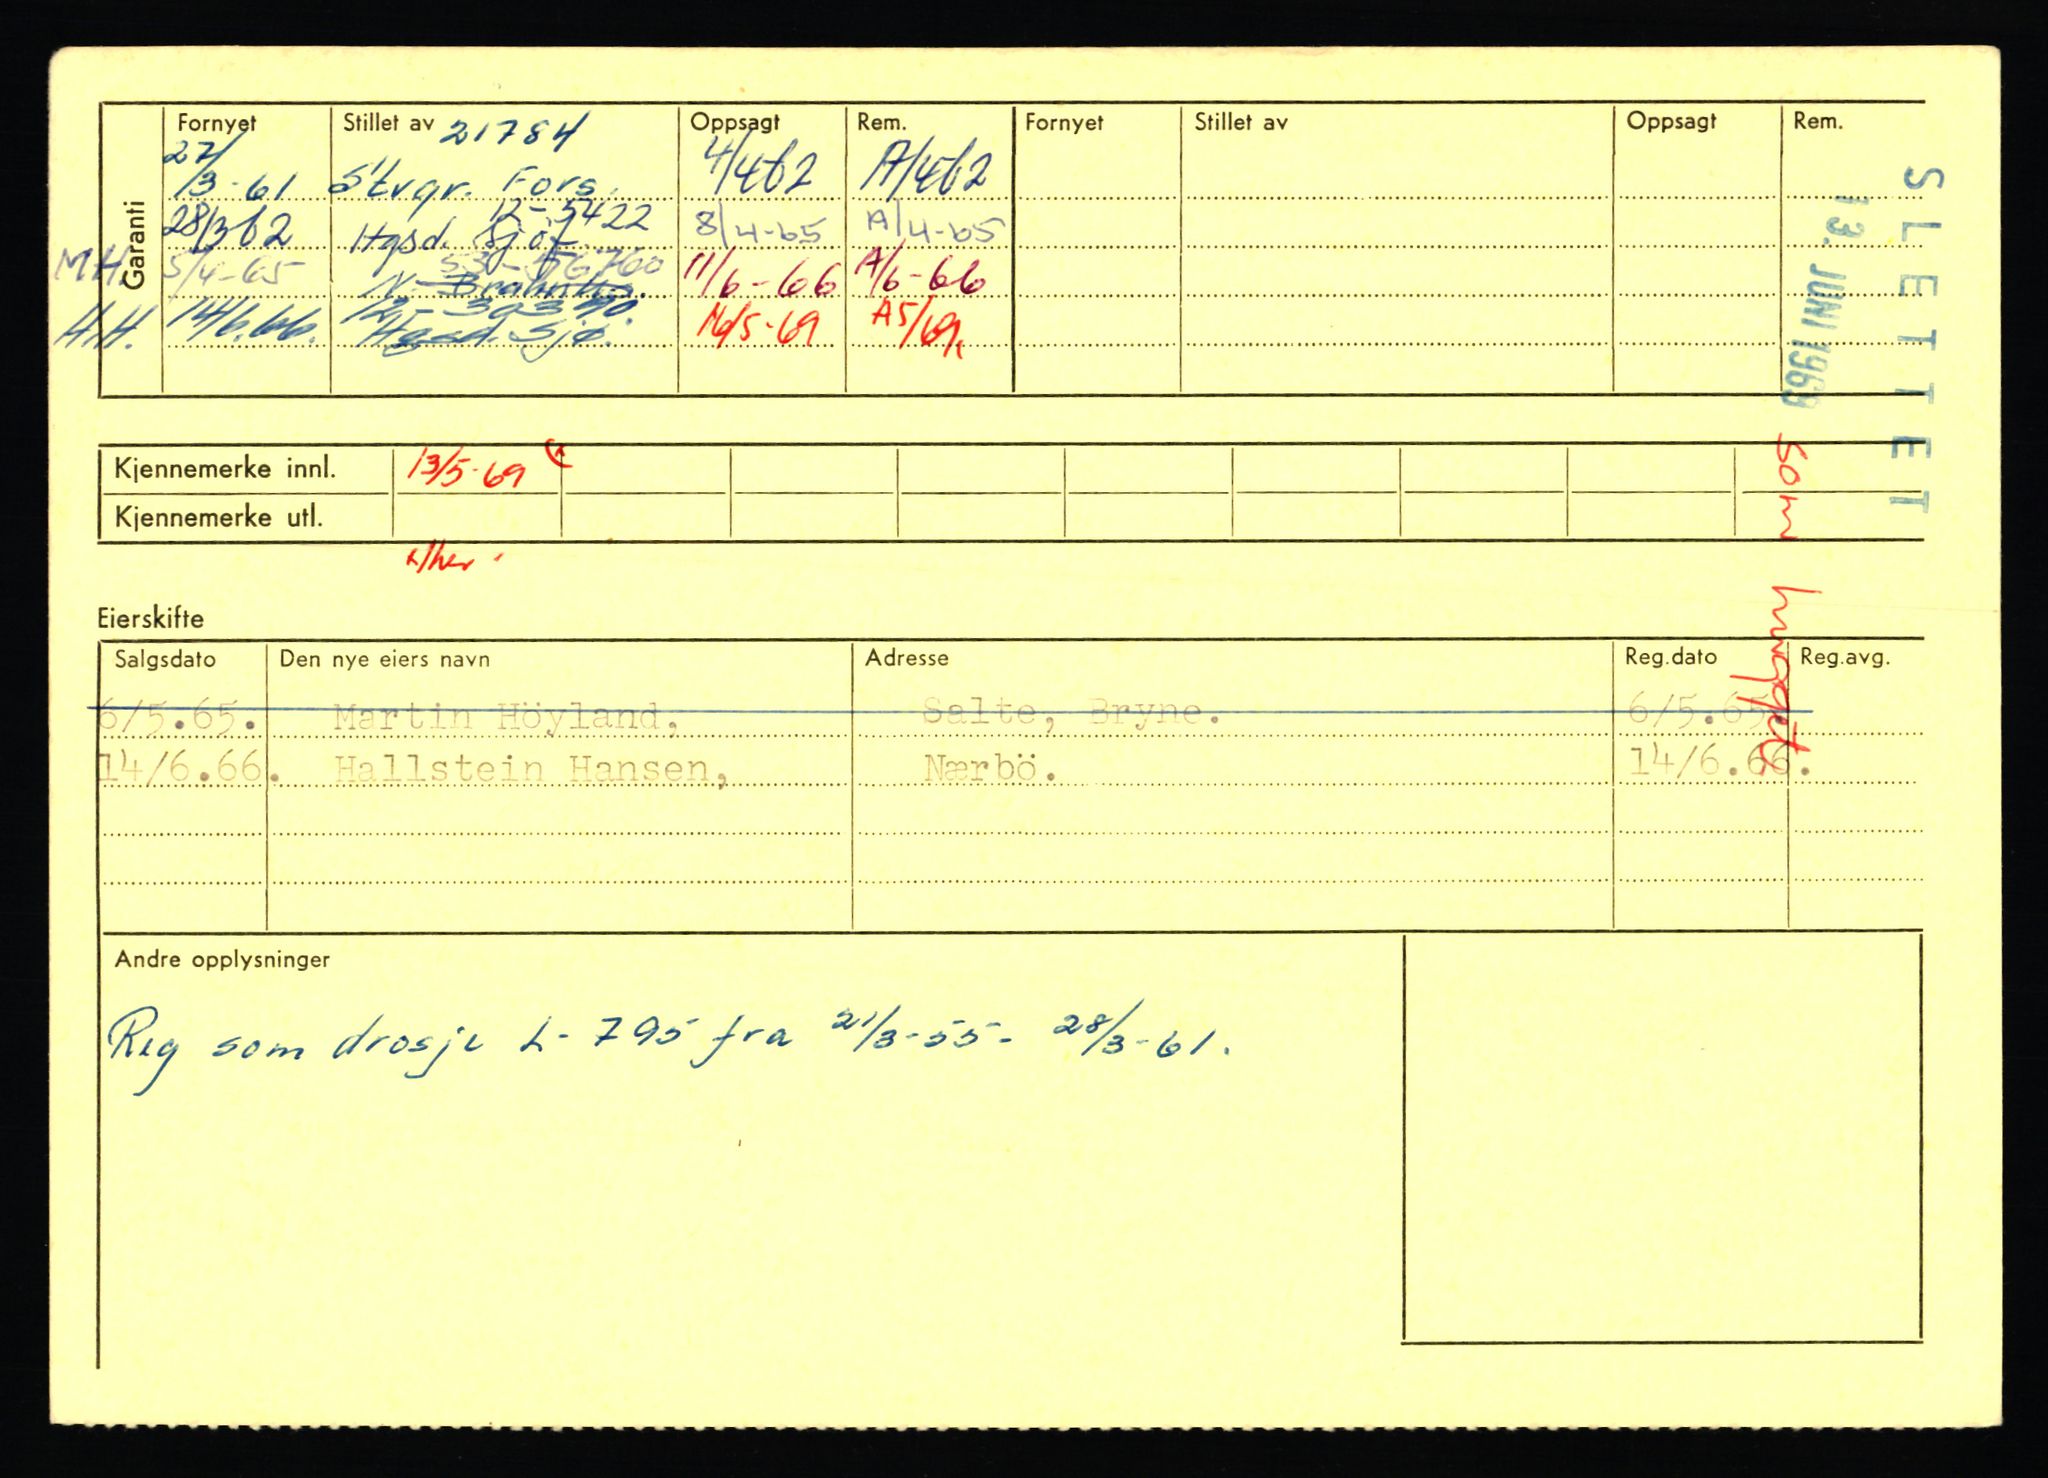 Garanti
Fornyet Stillet av 21784 Oppsagt Rem. Fornyet Stillet av Oppsagt Rem.
27/3-61 Stvgr. Fors. 4/4 62 A/4 62
12-5422
28/3 62 Hgsd. Sjø 8/4-65 A/4-65
53-56760
M.H. 5/4-65 N. 11/6-66 A/6-66
12-30390.
H.H. 14/6.66. Hgsd. Sjø. 16/5-69 A5/69.
SLETTET
13. JUNI 1969
som hugget
Kjennemerke innl. 13/5-69
Kjennemerke utl.
Eierskifte
Salgsdato Den nye eiers navn Adresse Reg.dato Reg.avg.
6/5.65. Martin Höyland, Salte, Bryne. 6/5.65.
14/6.66. Hallstein Hansen, Nærbö. 14/6.66.
Andre opplysninger
Reg som drosje L-795 fra 21/3-55- 28/3-61.